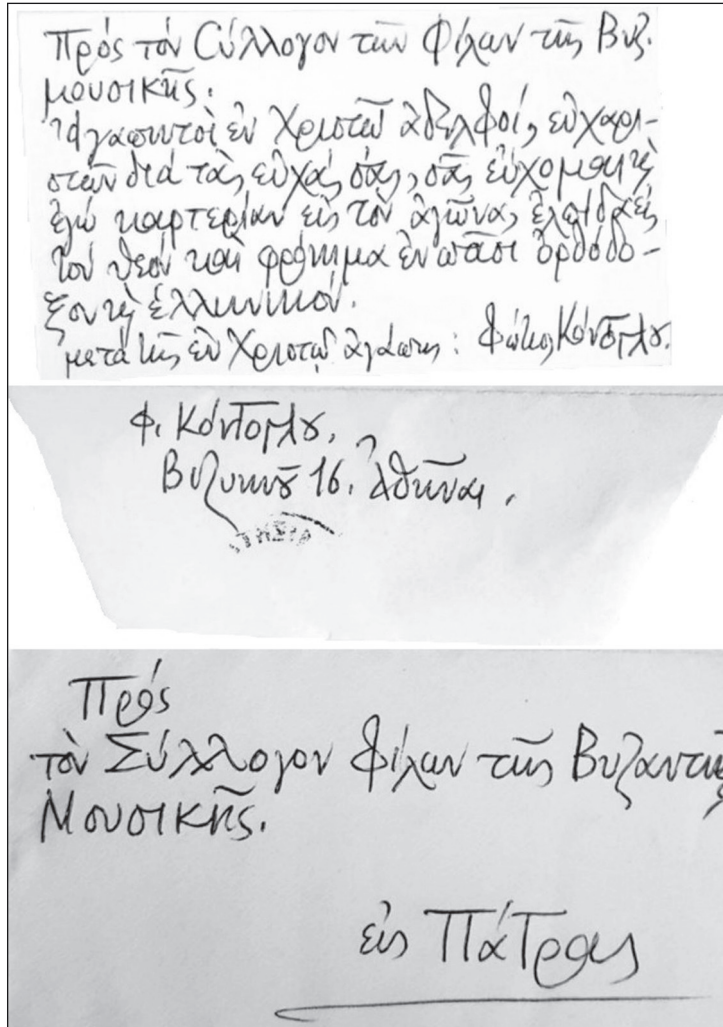 Πρός τόν Σύλλογον τῶν Φίλων τῆς Βυζ.
μουσικῆς.
Ἀγαπητοὶ ἐν Χριστῷ ἀδελφοί, εὐχαρι-
στῶν διά τὰς εὐχάς σας, σᾶς εὔχομαι κὶ
ἐγώ καρτερίαν εἰς τὸν ἀγῶνα, ἐλπίδα εἰς
τόν Θεόν καὶ φρόνημα ἐν πᾶσι ὀρθόδο-
ξον κὶ ἑλληνικόν.
μετά τῆς ἐν Χριστῷ ἀγάπης: Φώτιος Κόντογλου.
Φ. Κόντογλου,
Βιζυηνοῦ 16. Ἀθῆναι.
Πρός
τὸν Σύλλογον Φίλων τῆς Βυζαντινῆς
Μουσικῆς.
εἰς Πάτρας